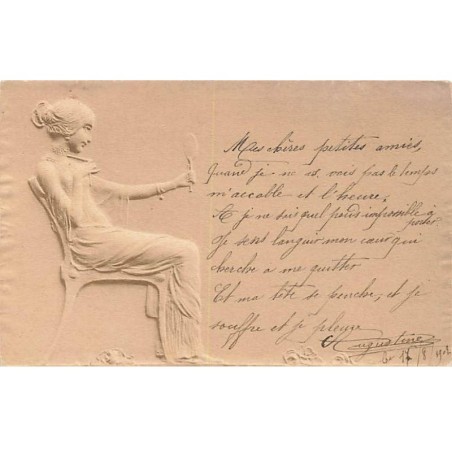 Mes chères petites amies,
Quand je ne vois pas le temps
m'accable et l'heure,
A je ne sais quel poids impossible à
porter
Je sens languir mon cœur qui
cherche a me quitter
Et ma tête se penche, et je
souffre et je pleure
Augustine
le 17/8/1902